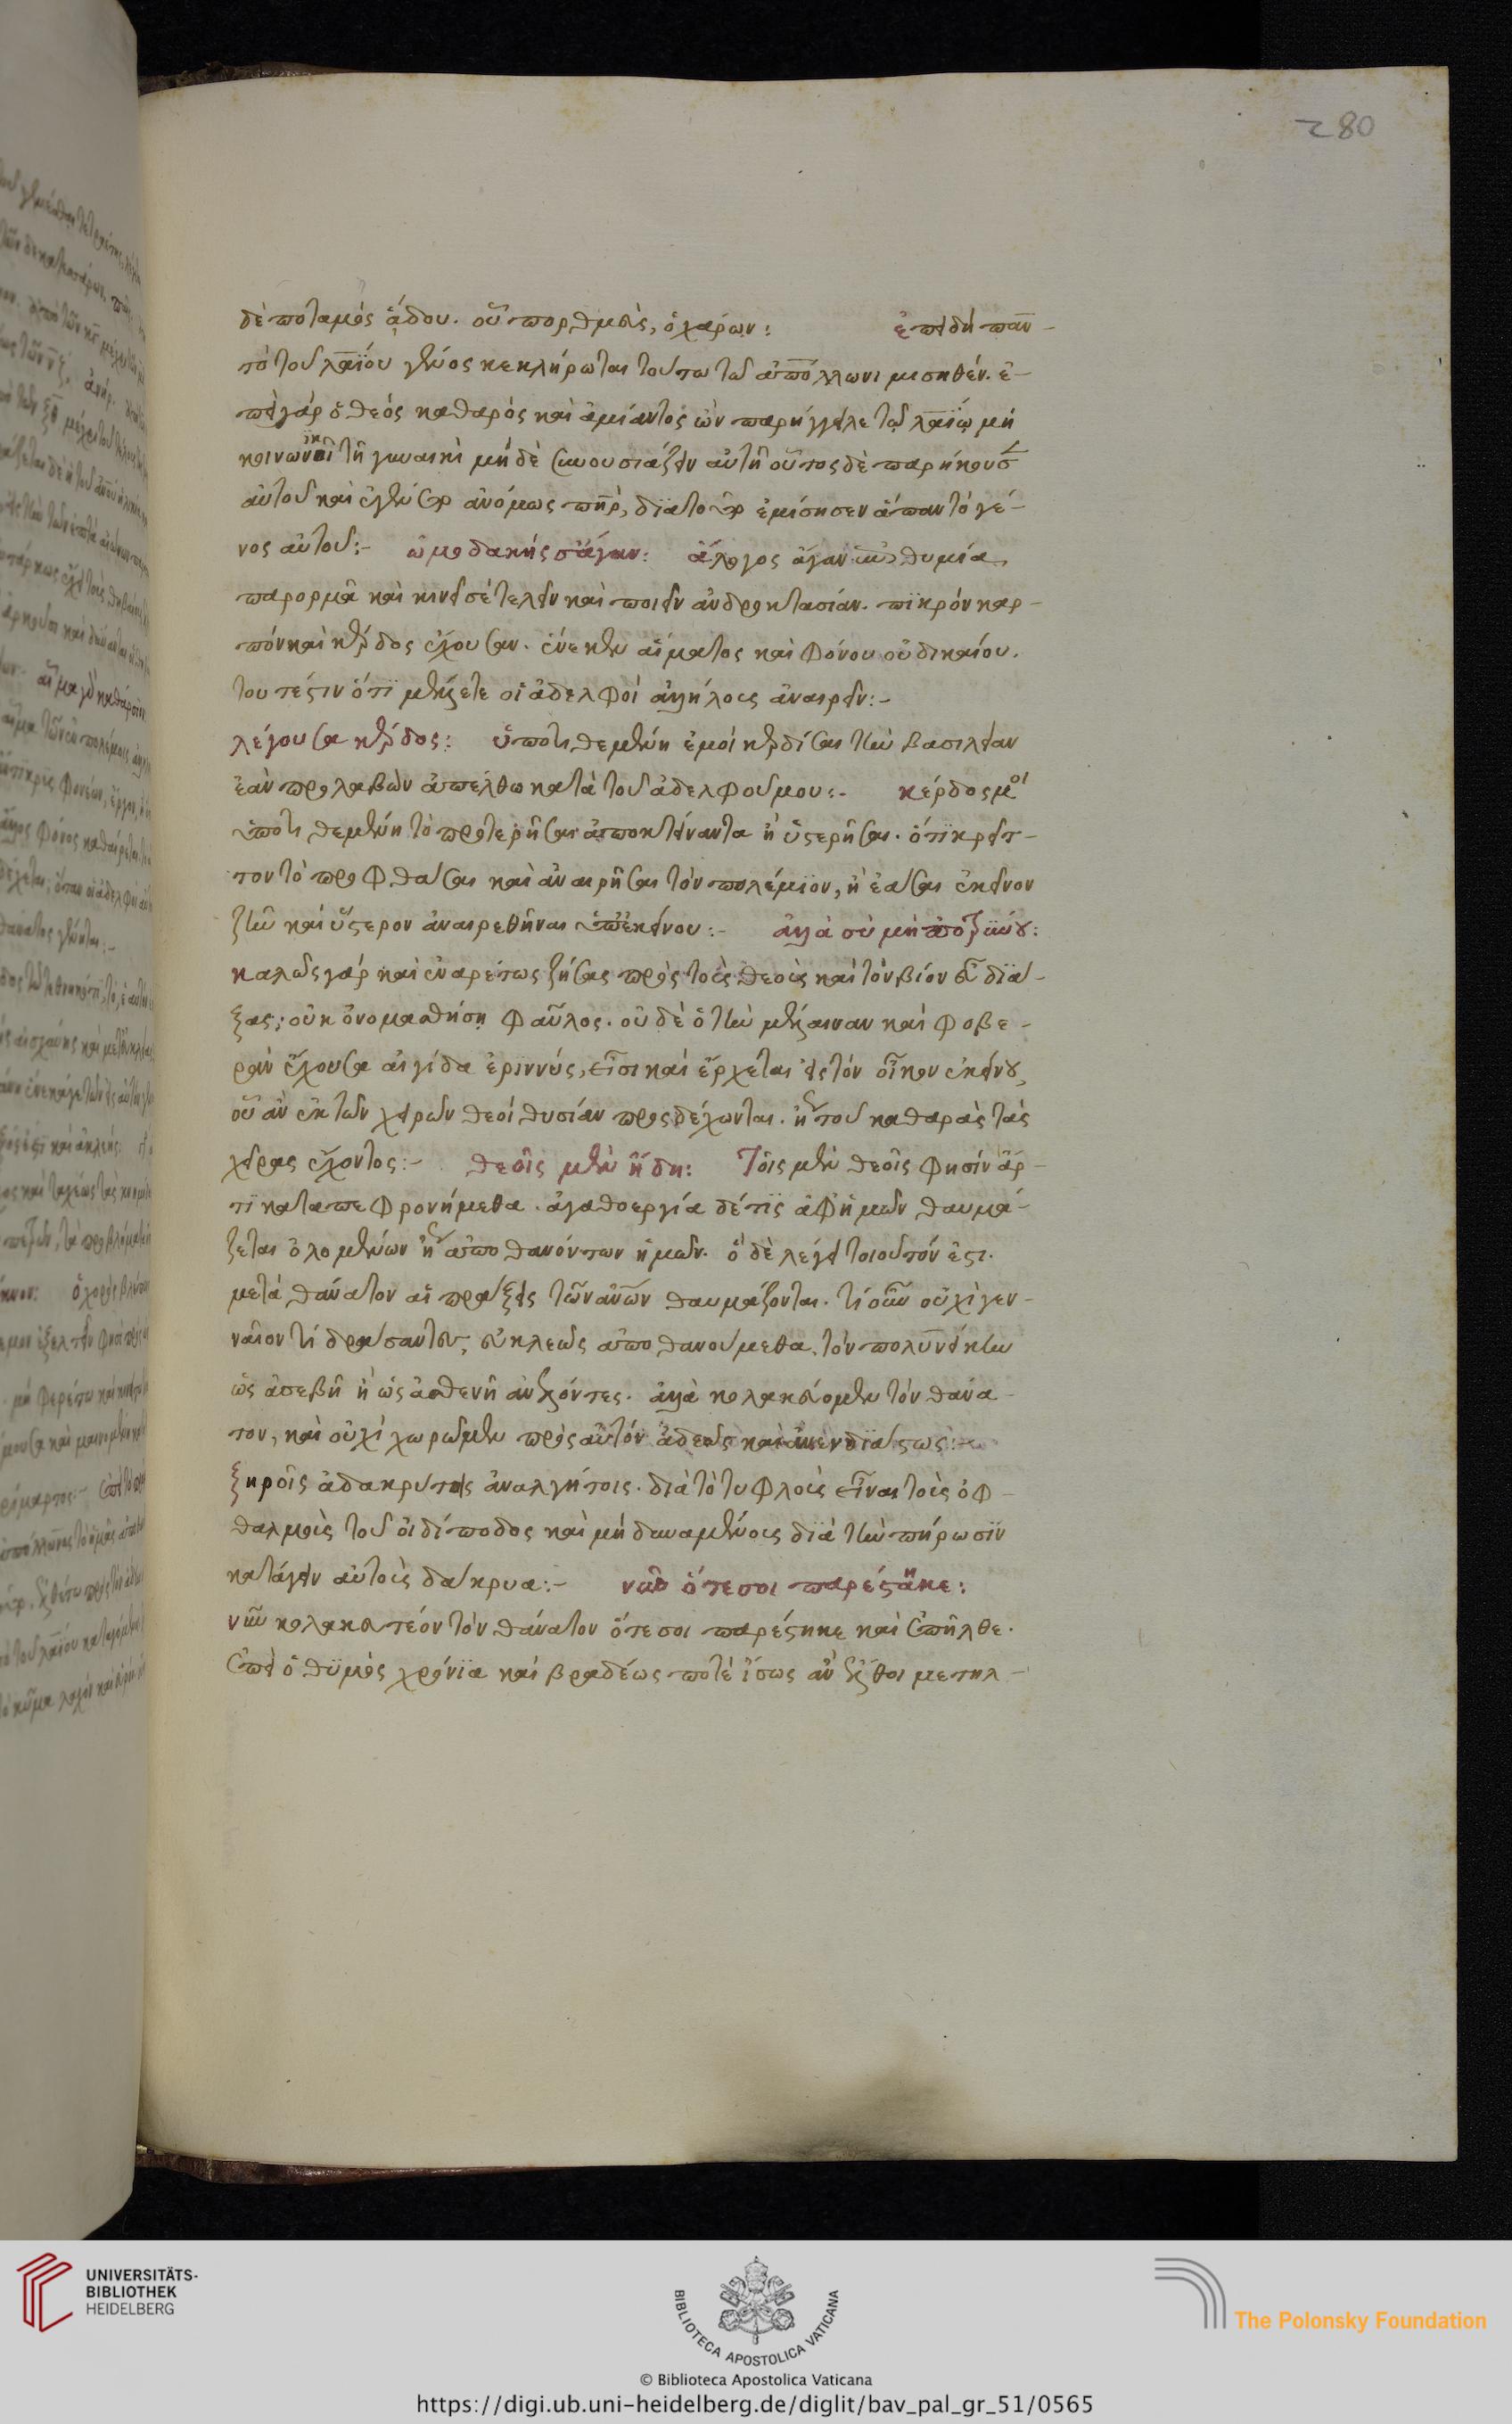 280
δὲ ποταμὸς ἅδου. οὗ πορθμεὺς, ὁ χάρων: ἐπειδὴ παν-
τὸ τοῦ λαΐου γένος κεκλήρωται τούτω τῶ ἀπόλλωνι μισηθέν. ἐ-
πεὶ γάρ ὁ θεός καθαρὸς καὶ ἀμίαντος ὢν παρήγγειλε τῷ λαΐῳ μὴ
τῆ γυναικὶ μὴ δὲ συνουσιάζειν αὐτῆ οὗτος δὲ παρήκουσ
αὐτοῦ καὶ ἐγέννησεν ἀνόμως διατοῦτο ἐμίσησεν ἅπαν τὸ γέ-
νος αὐτοῦ:- ὠμοδακής σ' ἄγαν: ἄλογος ἄγαν ἐπιθυμία
παρορμᾶ καὶ κινεῖ σέ τελεῖν καὶ ποιεῖν ἀνδροκτασίαν. πϊκρὸν καρ-
πὸν καὶ κέρδος ἔχουσαν. ἕνεκεν αἵματος καὶ φόνου οὐ δικαίου.
τουτέστιν ὅτϊ μέλλετε οἱ ἀδελφοὶ ἀλλήλους ἀναιρεῖν:-
λέγουσα κέρδος: ὑποτιθεμένη ἐμοὶ κερδίσαι τὴν βασιλείαν
ἐὰν προλαβὼν ἀπέλθω κατὰ τοῦ ἀδελφοῦ μου:- κέρδος μοι
ὑποτιθεμένη τὸ προτερῆσαι ἀποκτείναντα ἢ ὑστερῆσαι. ὅτϊ κρεῖτ-
τον τὸ προφθάσαι καὶ ἀναιρῆσαι τὸν πολέμϊον, ἢ ἐάσαι ἐκεῖνον
ζῆν καὶ ὕστερον ἀναιρεθῆναι ὑπ' ἐκείνου:- ἀλλὰ σὺ μὴ
καλῶς γάρ καὶ ἐναρέτως ζήσας πρὸς τοὺς θεοὺς καὶ τὸν βίον εὖ δϊά-
ξας; οὐκ ὀνομασθήση φαῦλος. οὐδὲ ὁ τὴν μέλαιναν καὶ φοβε-
ρὰν ἔχουσα αἰγίδα ἐριννύς, εἶσι καὶ ἔρχεται εἰς τὸν οἶκον ἐκείνου,
οὗ ἂν ἐκ τῶν χειρῶν θεοὶ θυσίαν προσδέχωνται. ἤγουν τοῦ καθαρὰς τὰς
χεῖρας ἔχοντος:- θεοῖς μὲν ἤδη: Τοῖς μὲν θεοῖς φησὶν ἄρ-
τϊ καταπεφρονήμεθα. ἀγαθοεργία δέ τϊς ἀφ' ἡμῶν θαυμά-
ζεται ὀλομένων ἤγουν ἀποθανόντων ἡμῶν. ὃ δὲ λέγει τοιοῦτόν ἐστι.
μετὰ θάνατον αἱ πράξεις τῶν ἀνων θαυμάζονται. τί οὖν οὐχὶ γεν-
ναῖον τὶ δράσαντες, εὐκλεῶς ἀποθανούμεθα. τὸν πολυνείκην
ὡς ἀσεβῆ ἢ ὡς ἀσθενῆ ἀνελόντες. ἀλλὰ κολακεύομεν τὸν θάνα-
τον, καὶ οὐχὶ χωρῶμεν πρὸς αὐτὸν ἀδεῶς καὶ ἀνενδϊάστως:-
ξηροῖς ἀδακρύτοις ἀναλγήτοις. διὰ τὸ τυφλοὺς εἶναι τοὺς ὀφ-
θαλμοὺς τοῦ οἰδίποδος καὶ μὴ δυναμένους δϊὰ τὴν πήρωσϊν
κατάγειν αὐτοὺς δάκρυα:- νῦν ὅτε σοι παρέστηκε:
νῦν κολακευτέον τὸν θάνατον ὅτε σοι παρέστηκε καὶ ἐπῆλθε.
ἐπεὶ ὁ θϋμὸς χρόνϊα καὶ βραδέως ποτὲ ἴσως ἂν ἔλθοι μετηλ-
UNIVERSITÄTS-
BIBLIOTHEK
HEIDELBERG
BIBLIOTECA APOSTOLICA VATICANA
© Biblioteca Apostolica Vaticana
The Polonsky Foundation
https://digi.ub.uni-heidelberg.de/diglit/bav_pal_gr_51/0565